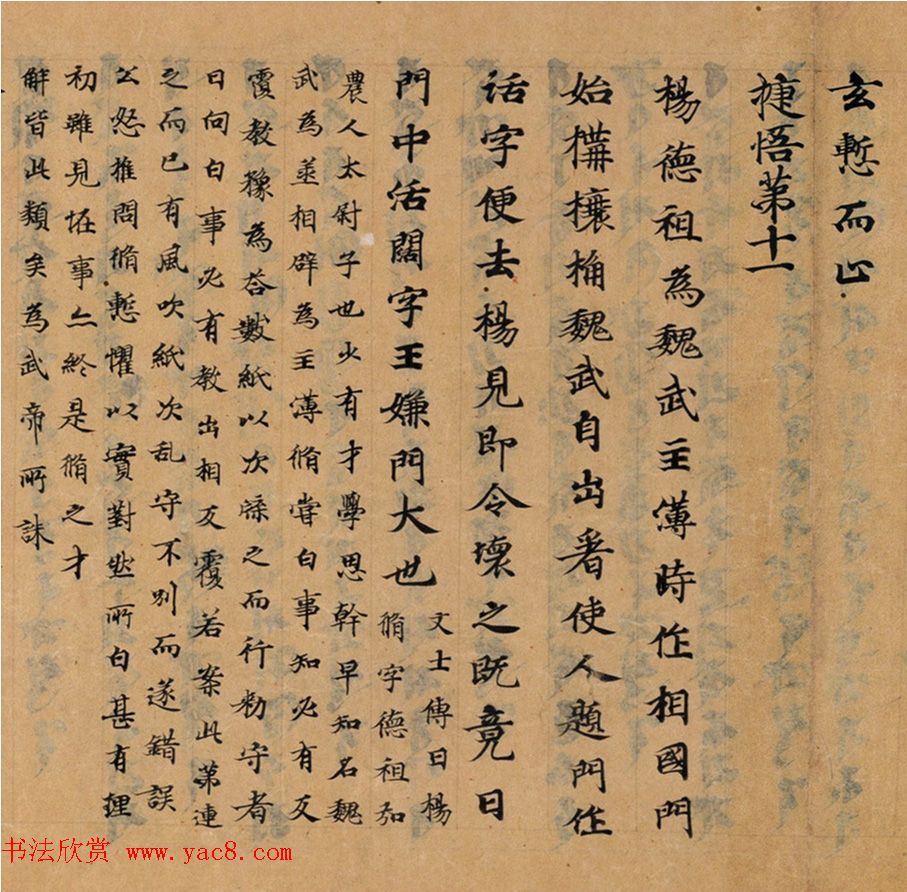 玄慙而止
捷悟第十一
楊德祖為魏武主薄時作相國門
始構攘桷魏武自出看使人題門作
活字便去楊見即令壞之既竟曰
門中活闊字王嫌門大也
文士傳曰楊
脩字德祖弘
農人太尉子也少有才學思幹早知名魏
武為丞相辟為主薄脩甞白事知必有反
覆教豫為荅數紙以次牒之而行勑守者
曰向白事必有教出相反覆若案此第連
之而已有風吹紙次乱守不別而遂錯誤
公怒推問脩慙懼以實對然所白甚有理
初雖見恠事亦終是脩之才
解皆此類矣為武帝所誅
书法欣赏 www.yac8.com